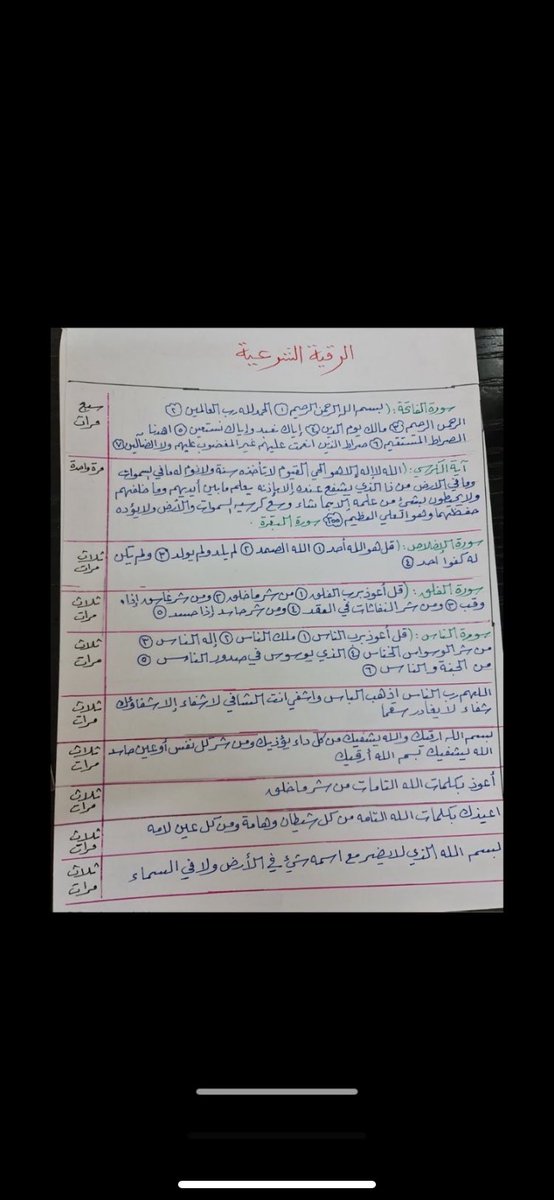 الرقية الشرعية
سورة الفاتحة: (بسم الله الرحمن الرحيم ١ الحمد لله رب العالمين ٢
سبع مرات
الرحمن الرحيم ٣ مالك يوم الدين ٤ إياك نعبد وإياك نستعين ٥ اهدنا
الصراط المستقيم ٦ صراط الذين انعمت عليهم غير المغضوب عليهم ولا الضآلين ٧
آية الكرسي: (الله لا إله إلا هو الحي القيوم لا تأخذه سنة ولا نوم له ما في السموات
مرة واحدة
وما في الأرض من ذا الذي يشفع عنده إلا بإذنه يعلم ما بين أيديهم وما خلفهم
ولا يحيطون بشئ من علمه إلا بما شاء وسع كرسيه السموات والأرض ولا يؤده
حفظهما وهو العلي العظيم ٢٥٥ سورة البقرة
سورة الإخلاص: (قل هو الله أحد ١ الله الصمد ٢ لم يلد ولم يولد ٣ ولم يكن
ثلاث مرات
له كفوا احد ٤
سورة الفلق: (قل أعوذ برب الفلق ١ من شر ما خلق ٢ ومن شر غاسق إذا
ثلاث مرات
وقب ٣ ومن شر النفاثات في العقد ٤ ومن شر حاسد إذا حسد ٥
سورة الناس: (قل أعوذ برب الناس ١ ملك الناس ٢ إله الناس ٣
ثلاث مرات
من شر الوسواس الخناس ٤ الذي يوسوس في صدور الناس ٥
من الجنة والناس ٦
اللهم رب الناس اذهب الباس واشفي انت الشافي لا شفاء إلا شفاؤك
ثلاث مرات
شفاء لا يغادر سقما
بسم الله ارقيك والله يشفيك من كل داء يؤذيك ومن شر كل نفس أو عين حاسد
ثلاث مرات
الله يشفيك بسم الله أرقيك
أعوذ بكلمات الله التامات من شر ما خلق
ثلاث مرات
اعيذك بكلمات الله التامه من كل شيطان وهامة ومن كل عين لامه
ثلاث مرات
بسم الله الذي لا يضر مع اسمه شيء في الأرض ولا في السماء
ثلاث مرات